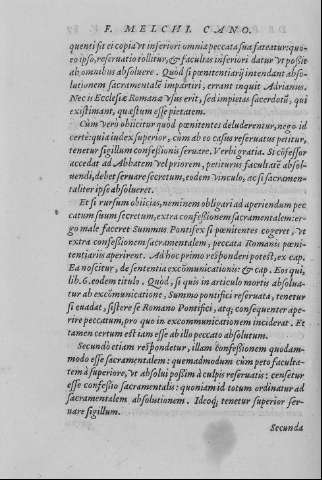 F. MELCHI. CANO.
quenti sit ei copia vt inferiori omnia peccata sua fateatur: quo-
eo ipso, reseruatio tollitur, & facultas inferiori datur vt possit
ab omnibus absoluere. Quòd si pœnitentiarij intendant abso-
lutionem sacramentalē impartiri, errant inquit Adrianus.
Nec is Ecclesiæ Romana vsus erit, sed impietas sacerdotū, qui
existimant, quæstum esse pietatem.
Cùm verò obijcitur quòd pœnitentes deluderentur, nego id
certè: quia iudex superior, cùm ab eo casus reseruatus petitur,
tenetur sigillum confessionis seruare. Verbi gratia. Si cōfessor
accedat ad Abbatem vel priorem, petiturus facultatē absol-
uendi, debet seruare secretum, eodem vinculo, ac si sacramen-
taliter ipse absolueret.
Et si rursum obijcias, neminem obligari ad aperiendum pec
catum suum secretum, extra confessionem sacramentalem: er-
go male faceret Summus Pontifex si pœnitentes cogeret, vt
extra confessionem sacramentalem, peccata Romanis pœni-
tentiariis aperirent. Ad hoc primo respōderi potest, ex cap.
Ea noscitur, de sententia excōmunicationis: & cap. Eos qui,
lib. 6. eodem titulo. Quòd, si quis in articulo mortis absolua-
tur ab excōmunicatione, Summo pontifici reseruata, tenetur
si euadat, sistere se Romano Pontifici, atq; consequenter ape-
rire peccatum, pro quo in excommunicationem inciderat. Et
tamen certum est iam esse ab illo peccato absolutum.
Secundò etiam respōdetur, illam cōfessionem quodam-
modo esse sacramentalem: quemadmodum cùm peto faculta-
tem à superiore, vt absolui possim à culpis reseruatis: censetur
esse confessio sacramentalis: quoniam id totum ordinatur ad
sacramentalem absolutionem. Ideoq; tenetur superior ser-
uare sigillum.
Secunda